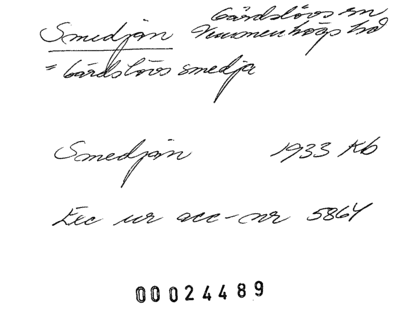 Smedjan Gärdslövs sn
Vemmenhögs hd
= Gärdslövs smedja
Smedjan 1933 Kb
Exc ur acc-nr 5864
00024489